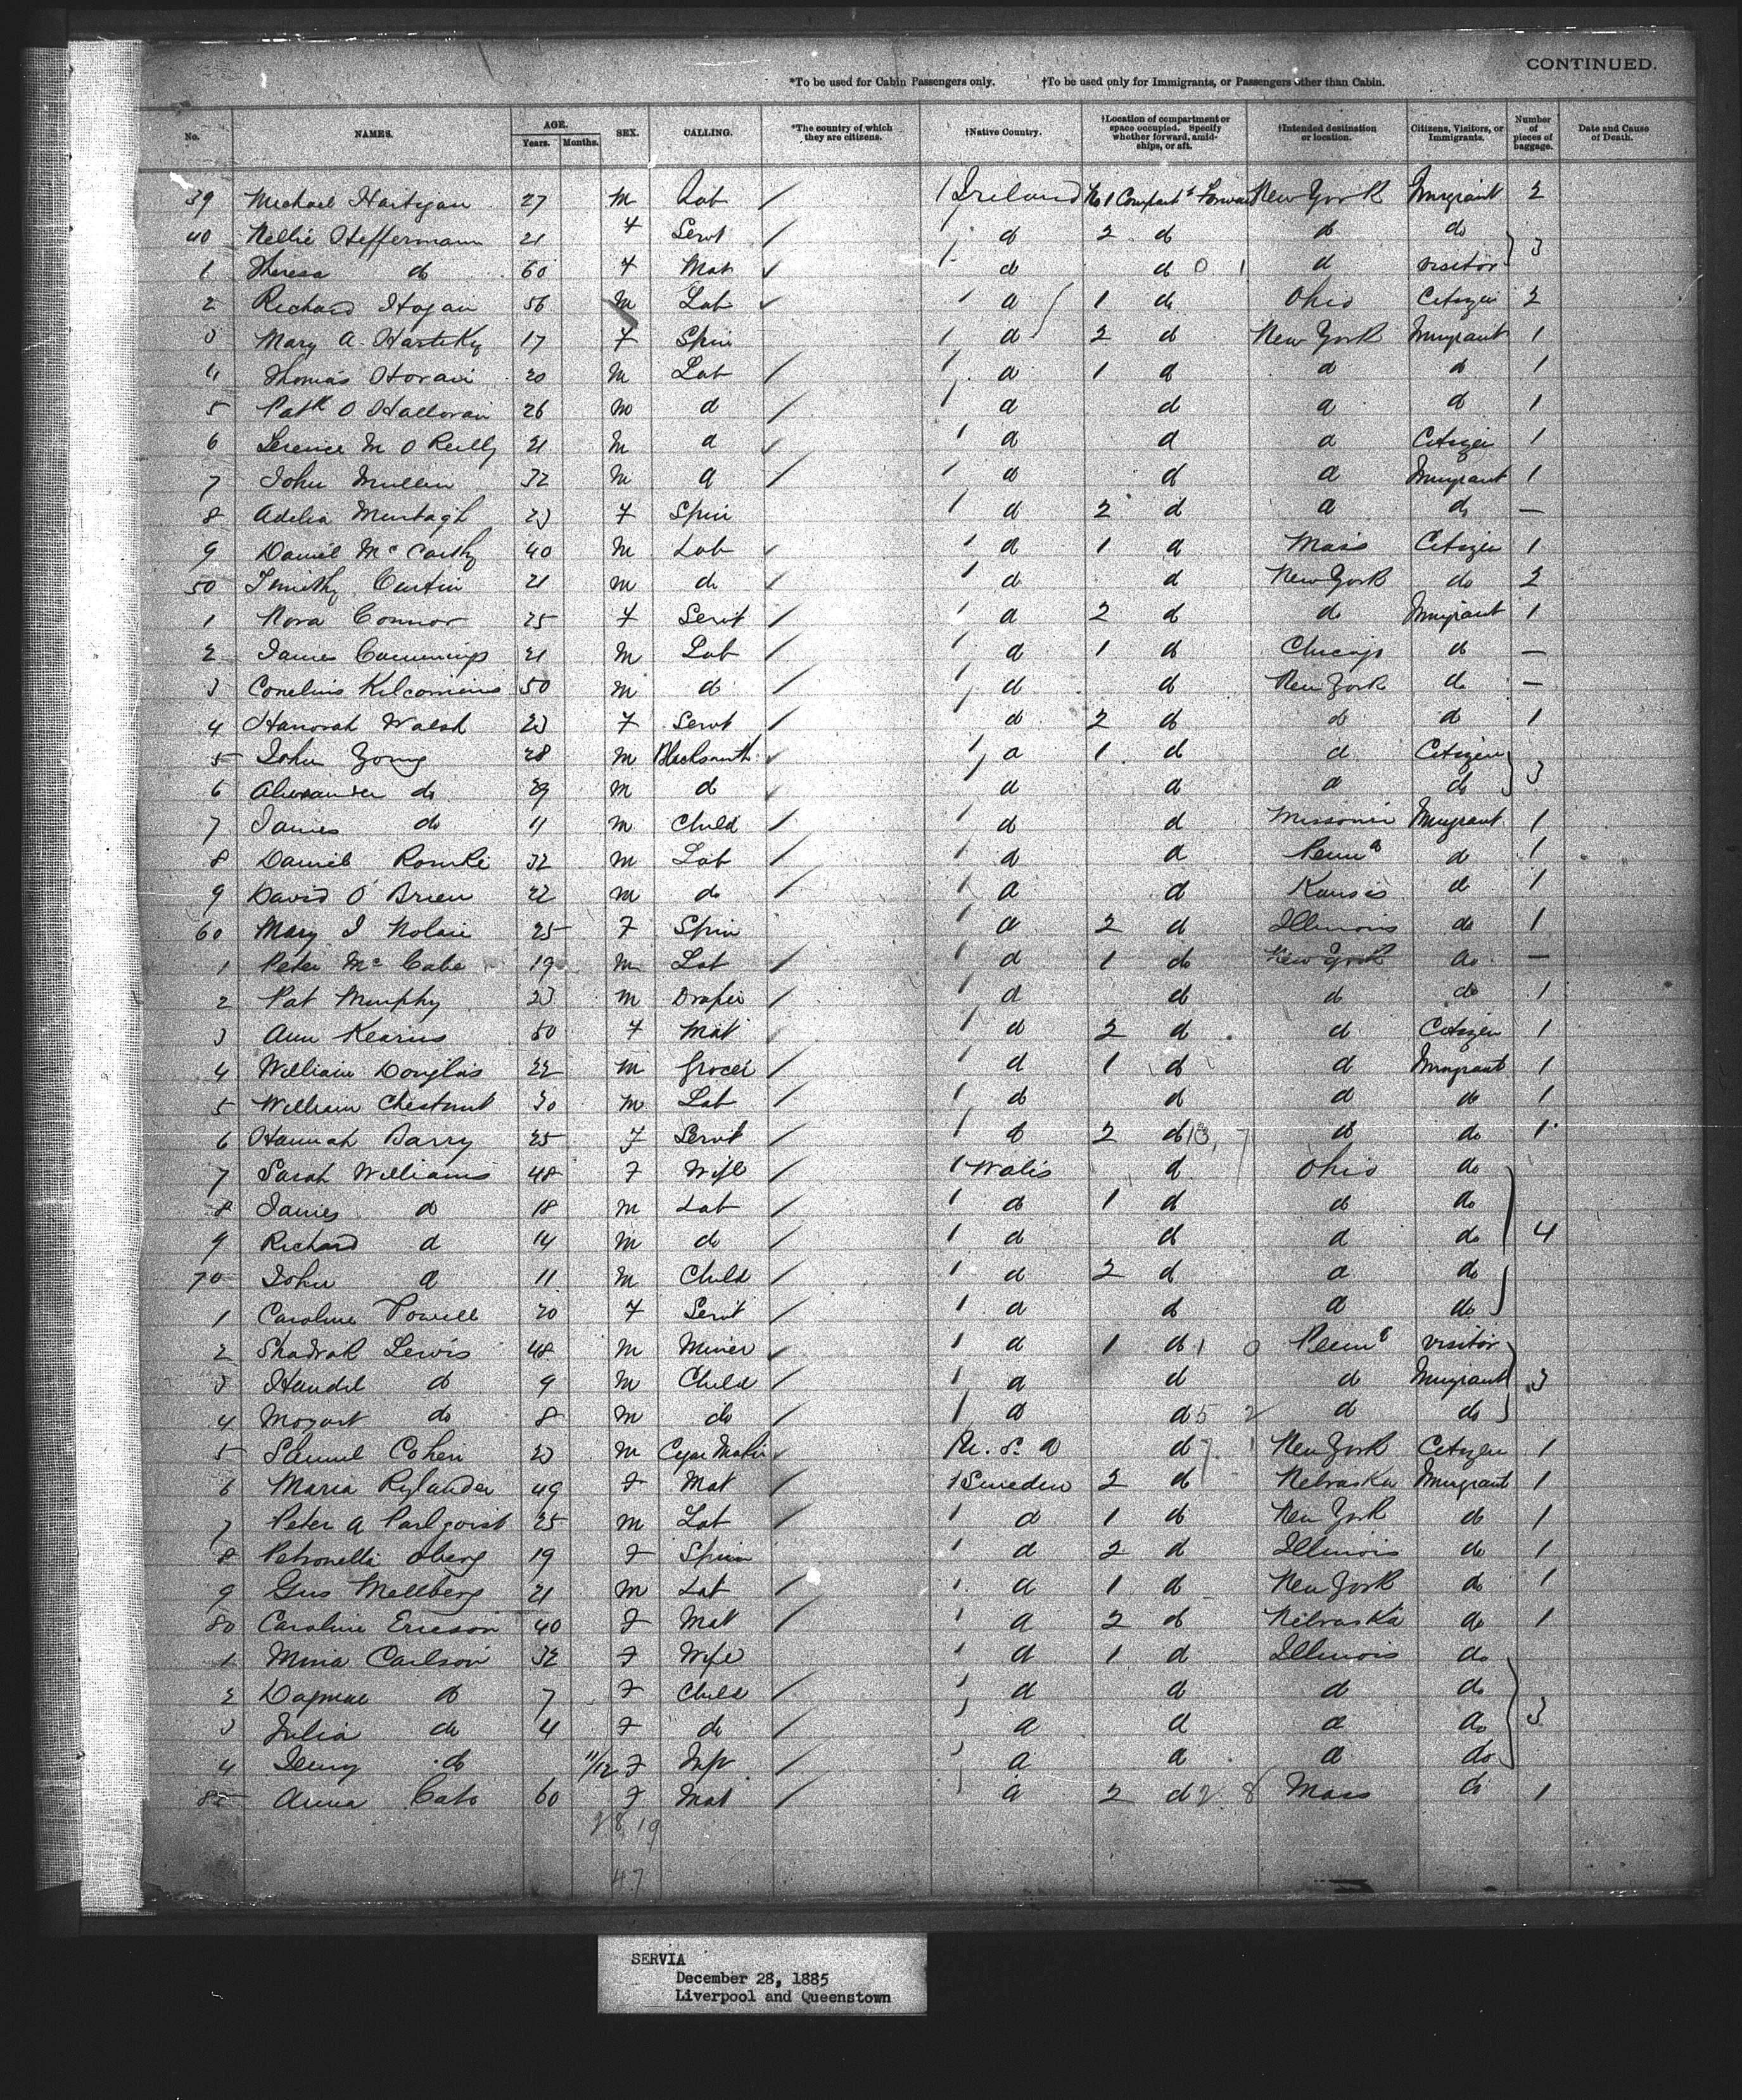 CONTINUED.
*To be used for Cabin Passengers only. †To be used only for Immigrants, or Passengers other than Cabin.
No. NAMES. AGE. Years. Months. SEX. CALLING. *The country of which they are citizens. †Native Country. †Location of compartment or space occupied. Specify whether forward, amidships, or aft. †Intended destination or location. Citizens, Visitors, or Immigrants. Number of pieces of baggage. Date and Cause of Death.
39 Michael Hartigan 27 M Lab / 1 Ireland No 1 Compart t Forward New York Imigrant 2
40 Nellie Heffernan 21 F Servt / 1 do 2 do do do
1 Theresa do 60 F Mat / 1 do do 0 1 do visitor } 3
2 Richard Hogan 56 M Lab / 1 do 1 do Ohio Citizen 2
3 Mary A. 17 F Spin 1 do 2 do New York Imigrant 1
4 Thomas Horan 20 M Lab / 1 do 1 do do do 1
5 Patk O Halloran 26 M do / 1 do do do do 1
6 Terence M O Reilly 21 M do / 1 do do do Citizen 1
7 John Mullin 32 M do / 1 do do do Imigrant 1
8 Adelia Murtagh 23 F Spin 1 do 2 do do do —
9 Daniel Mc Carthy 40 M Lab / 1 do 1 do Mass Citizen 1
50 Timithy Curtin 21 M do / 1 do do New York do 2
1 Nora Connor 25 F Servt / 1 do 2 do do Imigrant 1
2 James Cummings 21 M Lab / 1 do 1 do Chicago do —
3 Conelius 50 M do / 1 do do New York do —
4 Hanorah Walsh 23 F Servt / 1 do 2 do do do 1
5 John Young 28 M Blacksmith / 1 do 1 do do Citizen
6 Alexander do 29 M do / 1 do do do do } 3
7 James do 11 M Child / 1 do do Missouri Imigrant 1
8 Daniel Rourke 32 M Lab / 1 do do Penna do 1
9 David O'Brien 22 M do / 1 do do Kansis do 1
60 Mary J Nolan 25 F Spin 1 do 2 do Illinois do 1
1 Peter Mc Cabe 19 M Lab / 1 do 1 do New York do —
2 Pat Murphy 23 M Draper / 1 do do do do 1
3 Ann Kearns 50 F Mat / 1 do 2 do do Citizen 1
4 William Douglas 22 M Grocer / 1 do 1 do do Imigrant 1
5 William Chestnut 30 M Lab / 1 do do do do 1
6 Hannah Barry 25 F Servt / 1 do 2 do 13, 7 do do 1
7 Sarah Williams 48 F Wife / 1 Walis do Ohio do
8 James do 18 M Lab / 1 do 1 do do do
9 Richard do 14 M do / 1 do do do do } 4
70 John do 11 M Child / 1 do 2 do do do
1 Caroline Powell 20 F Servt / 1 do do do do
2 Shadrak Lewis 48 M Miner / 1 do 1 do 1 0 Penna visitor
3 Handel do 9 M Child / 1 do do do Imigrant } 3
4 Mozart do 8 M do / 1 do do 5 2 do do
5 Samuel Cohen 23 M Cigar Maker / U. S. A do 1 New York Citizen 1
6 Maria Rylander 49 F Mat / 1 Sweden 2 do Nebraska Imigrant 1
7 Peter A 25 M Lab / 1 do 1 do New York do 1
8 Petronella Oberg 19 F Spin 1 do 2 do Illinois do 1
9 Gus Mellberg 21 M Lab / 1 do 1 do New York do 1
80 Caroline Ericson 40 F Mat / 1 do 2 do Nebraska do 1
1 Mina Carlson 32 F Wife 1 do 1 do Illinois do
2 Dagmar do 7 F Child / 1 do do do do
3 Julia do 4 F do / do do do do } 3
4 Jenny do 11/12 F Inft / 1 do do do do
85 Anna Cato 60 F Mat / 1 do 2 do 2 8 Mass do 1
28, 19
47
SERVIA
December 28, 1885
Liverpool and Queenstown